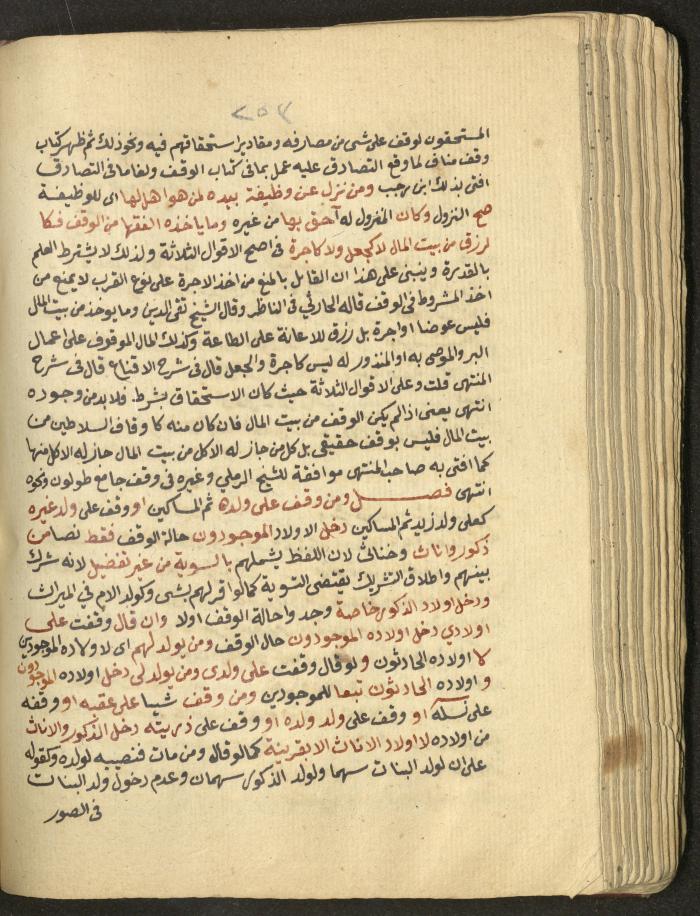 ٢٥٣
المستحقون لوقف على شي من مصارفه ومقادير استحقاقهم فيه ونحو ذلك ثم ظهر كتاب
وقف مناف لما وقع التصادق عليه عمل بما في كتاب الوقف ولغا ما في التصادق
افتى بذلك ابن رجب ومن نزل عن وظيفة بيده لمن هو اهل لها اى للوظيفة
صح النزول وكان المنزول له احق بها من غيره وما ياخذه الفقها من الوقف فكا
لرزق من بيت المال لا كجعل ولا كاجرة في اصح الاقوال الثلاثة ولذلك لا يشترط العلم
بالقدرة وينبنى على هذا ان القائل بالمنع من اخذ الاجرة على نوع القرب لا يمنع من
اخذ المشروط في الوقف قاله الحارثي في الناظر وقال الشيخ تقى الدين وما يوخذ من بيت المال
فليس عوضا واجرة بل رزق للاعانة على الطاعة وكذلك المال الموقوف على اعمال
البر والموصى به او المنذور له ليس كاجرة والجعل قال في شرح الاقناع قال في شرح
المنتهى قلت وعلى الاقوال الثلاثة حيث كان الاستحقاق بشرط فلا بد من وجوده
انتهى يعنى اذا لم يكن الوقف من بيت المال فان كان منه كاوقاف السلاطين من
بيت المال فليس بوقف حقيقي بل كل من جاز له الاكل من بيت المال جاز له الاكل منها
كما افتى به صاحب المنتهى موافقة للشيخ الرملي وغيره في وقف جامع طولون ونحوه
انتهى فصل ومن وقف على ولده ثم المساكين او وقف على ولد غيره
كعلى ولد زيد ثم المساكين دخل الاولاد الموجودون حالة الوقف فقط نصا من
ذكور واناث وخناثى لان اللفظ يشملهم بالسوية من غير تفضيل لانه شرك
بينهم واطلاق التشريك يقتضى التسوية كما لو اقر لهم بشى وكولد الام في الميراث
ودخل اولاد الذكور خاصة وجد واحالة الوقف اولا وان قال وقفت على
اولادي دخل اولاده الموجودون حال الوقف ومن يولد لهم اى لاولاده الموجودين
لا اولاده الحادثون ولو قال وقفت على ولدى ومن يولد لى دخل اولاده الموجودون
واولاده الحادثون تبعا للموجودين ومن وقف شيا على عقبه او وقفه
على نسله او وقف على ولد ولده او وقف على ذريته دخل الذكور والاناث
من اولاده لا اولاد الاناث الا بقرينة كما لو قال ومن مات فنصيبه لولده وكقوله
على ان لولد البنات سهما ولولد الذكور سهمان وعدم دخول ولد البنات
في الصور